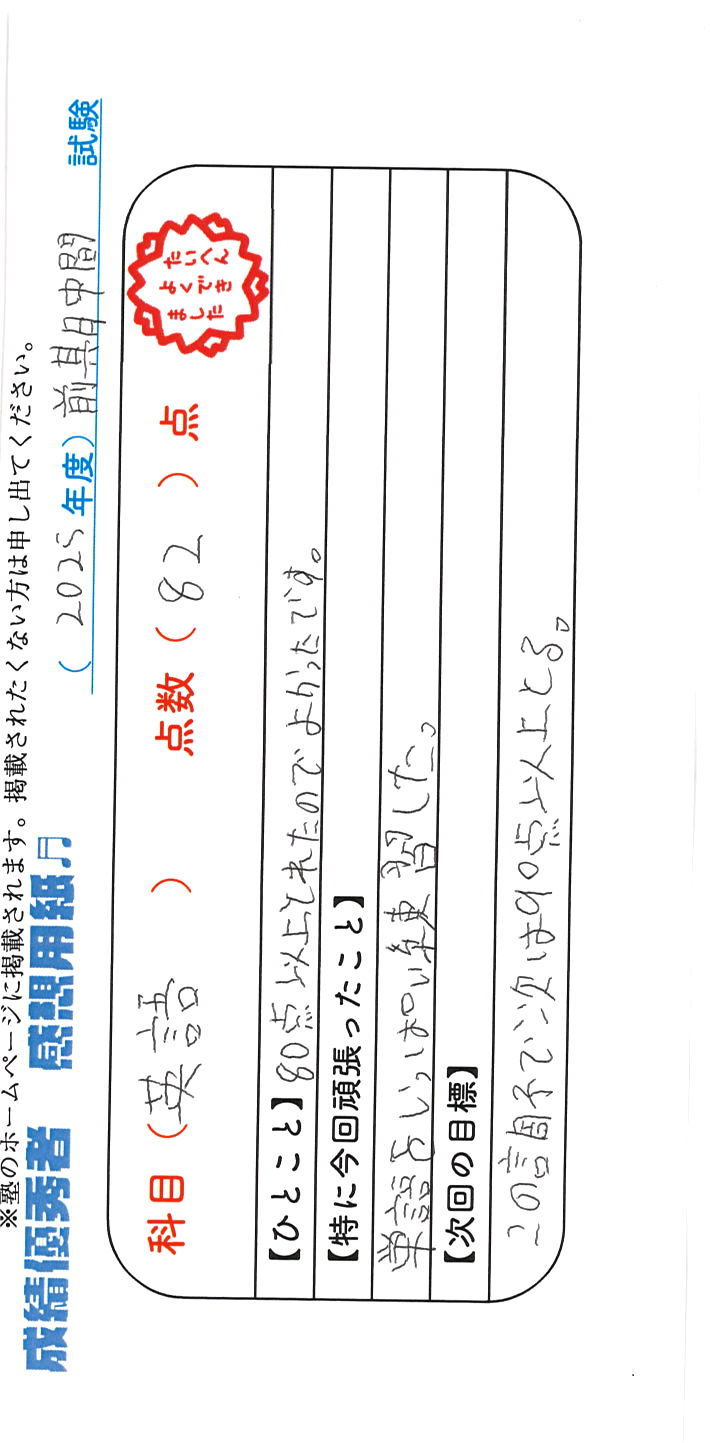 ※塾のホームページに掲載されます。掲載されたくない方は申し出てください。
成績優秀者 感想用紙♬
(2025年度)前期中間 試験
科目(英語) 点数(82)点
たいへん
よくでき
ました
【ひとこと】80点以上とれたのでよかったです。
【特に今回頑張ったこと】
単語をいっぱい練習した。
【次回の目標】
この調子で次は90点以上とる。